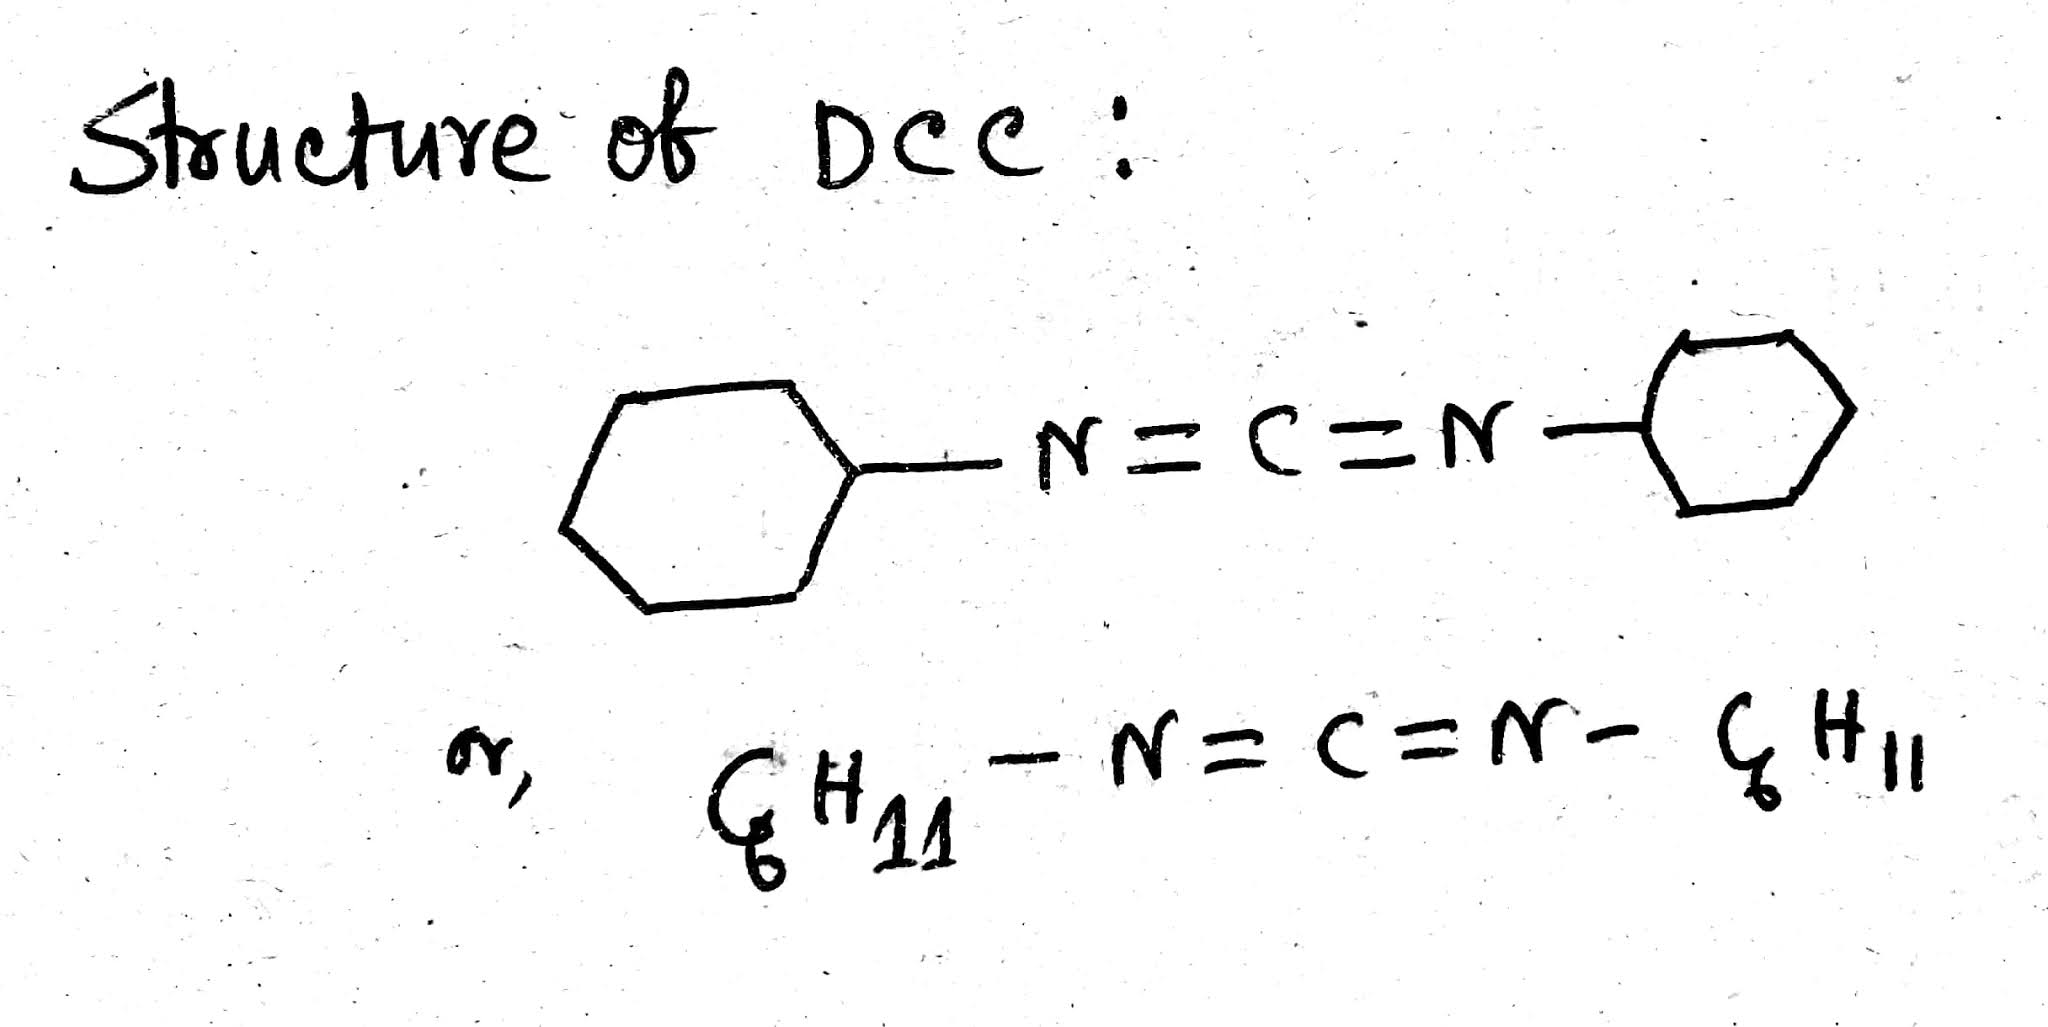 Structure of DCC :
N = C = N
or, C₆H₁₁ - N = C = N - C₆H₁₁